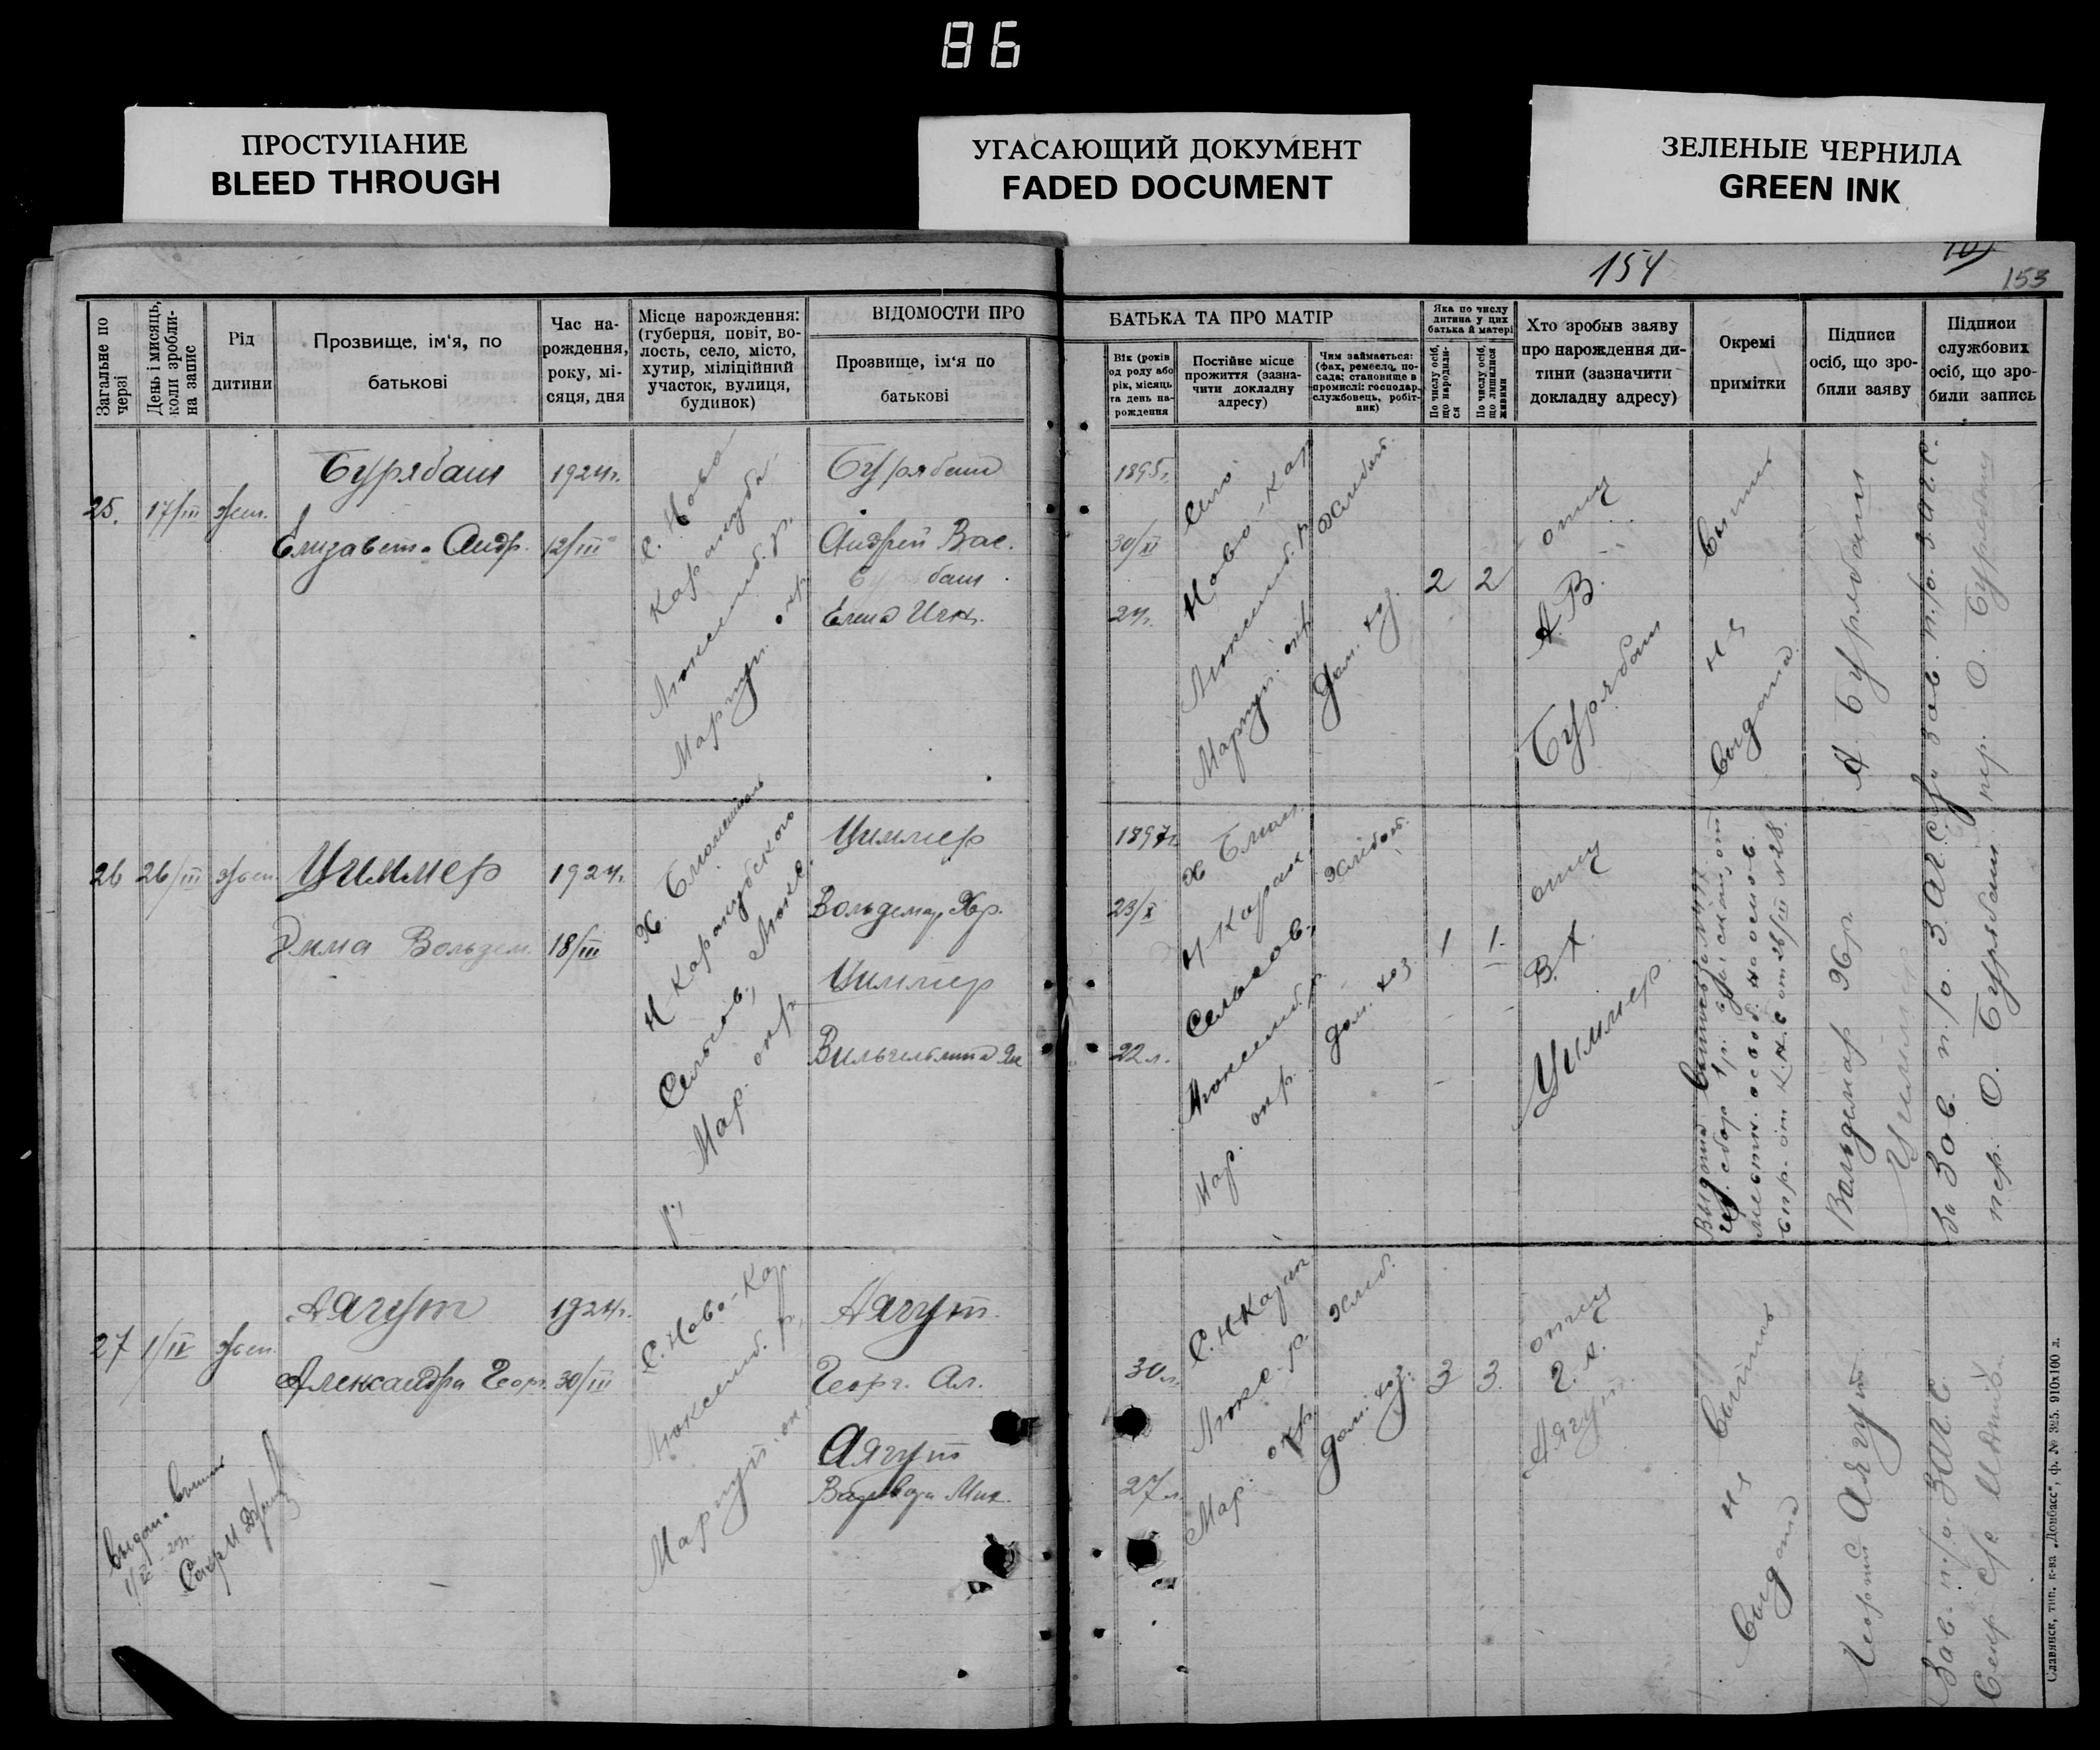 86
ПРОСТУПАНИЕ
BLEED THROUGH
УГАСАЮЩИЙ ДОКУМЕНТ
FADED DOCUMENT
ЗЕЛЕНЫЕ ЧЕРНИЛА
GREEN INK
154
153
Загальне по черзі
День і місяць, коли зроблина запис
Рід
дитини
Прозвище, ім‘я, по
батькові
Час на-
рождення,
року, мі-
сяця, дня
Місце нарождення:
(губерня, повіт, во-
лость, село, місто,
хутир, міліційний
участок, вулиця,
будинок)
ВІДОМОСТИ ПРО
Прозвище, ім‘я по
батькові
БАТЬКА ТА ПРО МАТІР
Вік (років
од роду або
рік, місяць
та день на-
рождення
Постійне місце
прожиття (зазна-
чити докладну
адресу)
Чим займається:
(фах, ремесло, по-
сада; становище в
промислі: господар,
службовець, робіт-
ник)
Яка по числу
дитина у цих
батька й матері
По числу осіб,
що народили-
ся
По числу осіб,
що лишилися
живими
Хто зробыв заяву
про нарождення ди-
тини (зазначити
докладну адресу)
Окремі
примітки
Підписи
осіб, що зро-
били заяву
Підписи
службових
осіб, що зро-
били запись
25.
17/III
жен.
Бурябаш
Елизавета Андр.
1924г.
12/III
С. Ново
Каракуба
Люксемб. р.
Мариуп. окр.
Бурябаш
Андрей Вас.
Бурябаш
Елена Игн.
1895г.
30/XI
24г.
Село
Ново-Кар
Люксемб. р
Мариуп. окр
Хлебоп.
Дом. хоз.
2
2
отец
А. В.
Бурябаш
А Бурябаш
За Зав. п/о. ЗАГС.
О. Бурябаш
26
26/III
жен
Циммер
Эмма Вольдем.
1924г.
18/III
Х.
Н Каракубского
Сельсов., Люкс.
р., Мар. окр
Циммер
Вольдемар Хр.
Циммер
Вильгельмина
1897г
23/X
22 л.
Х
Н-Карак
Сельсов.
Люксемб. р.
Мар. окр.
Хлебоп.
Дом. хоз
1
1.
отец
В. Х.
Циммер
Вольдемар Хр.
Циммер
За Зав. п/о. ЗАГС
пер. О. Бурябаш
27
1/IV
жен.
Аягут
Александра Георг.
1924г.
30/III
С. Ново-Кар.
Люксемб. р,
Мариуп. ок.
Аягут.
Георг. Ал.
Аягут
Варвара Мих.
30л.
27 л
С. Н-Карак
Люкс-р
Мар. окр.
Хлеб.
Дом. хоз.
3
3.
отец
Г. А.
Аягут
Выпись
Выдана
Георгий Аягут
Зав. п/о. ЗАГС
Выдана выпись
Славянск, тип. к-ва „Донбасс“, ф. № 325. 910х100 л.